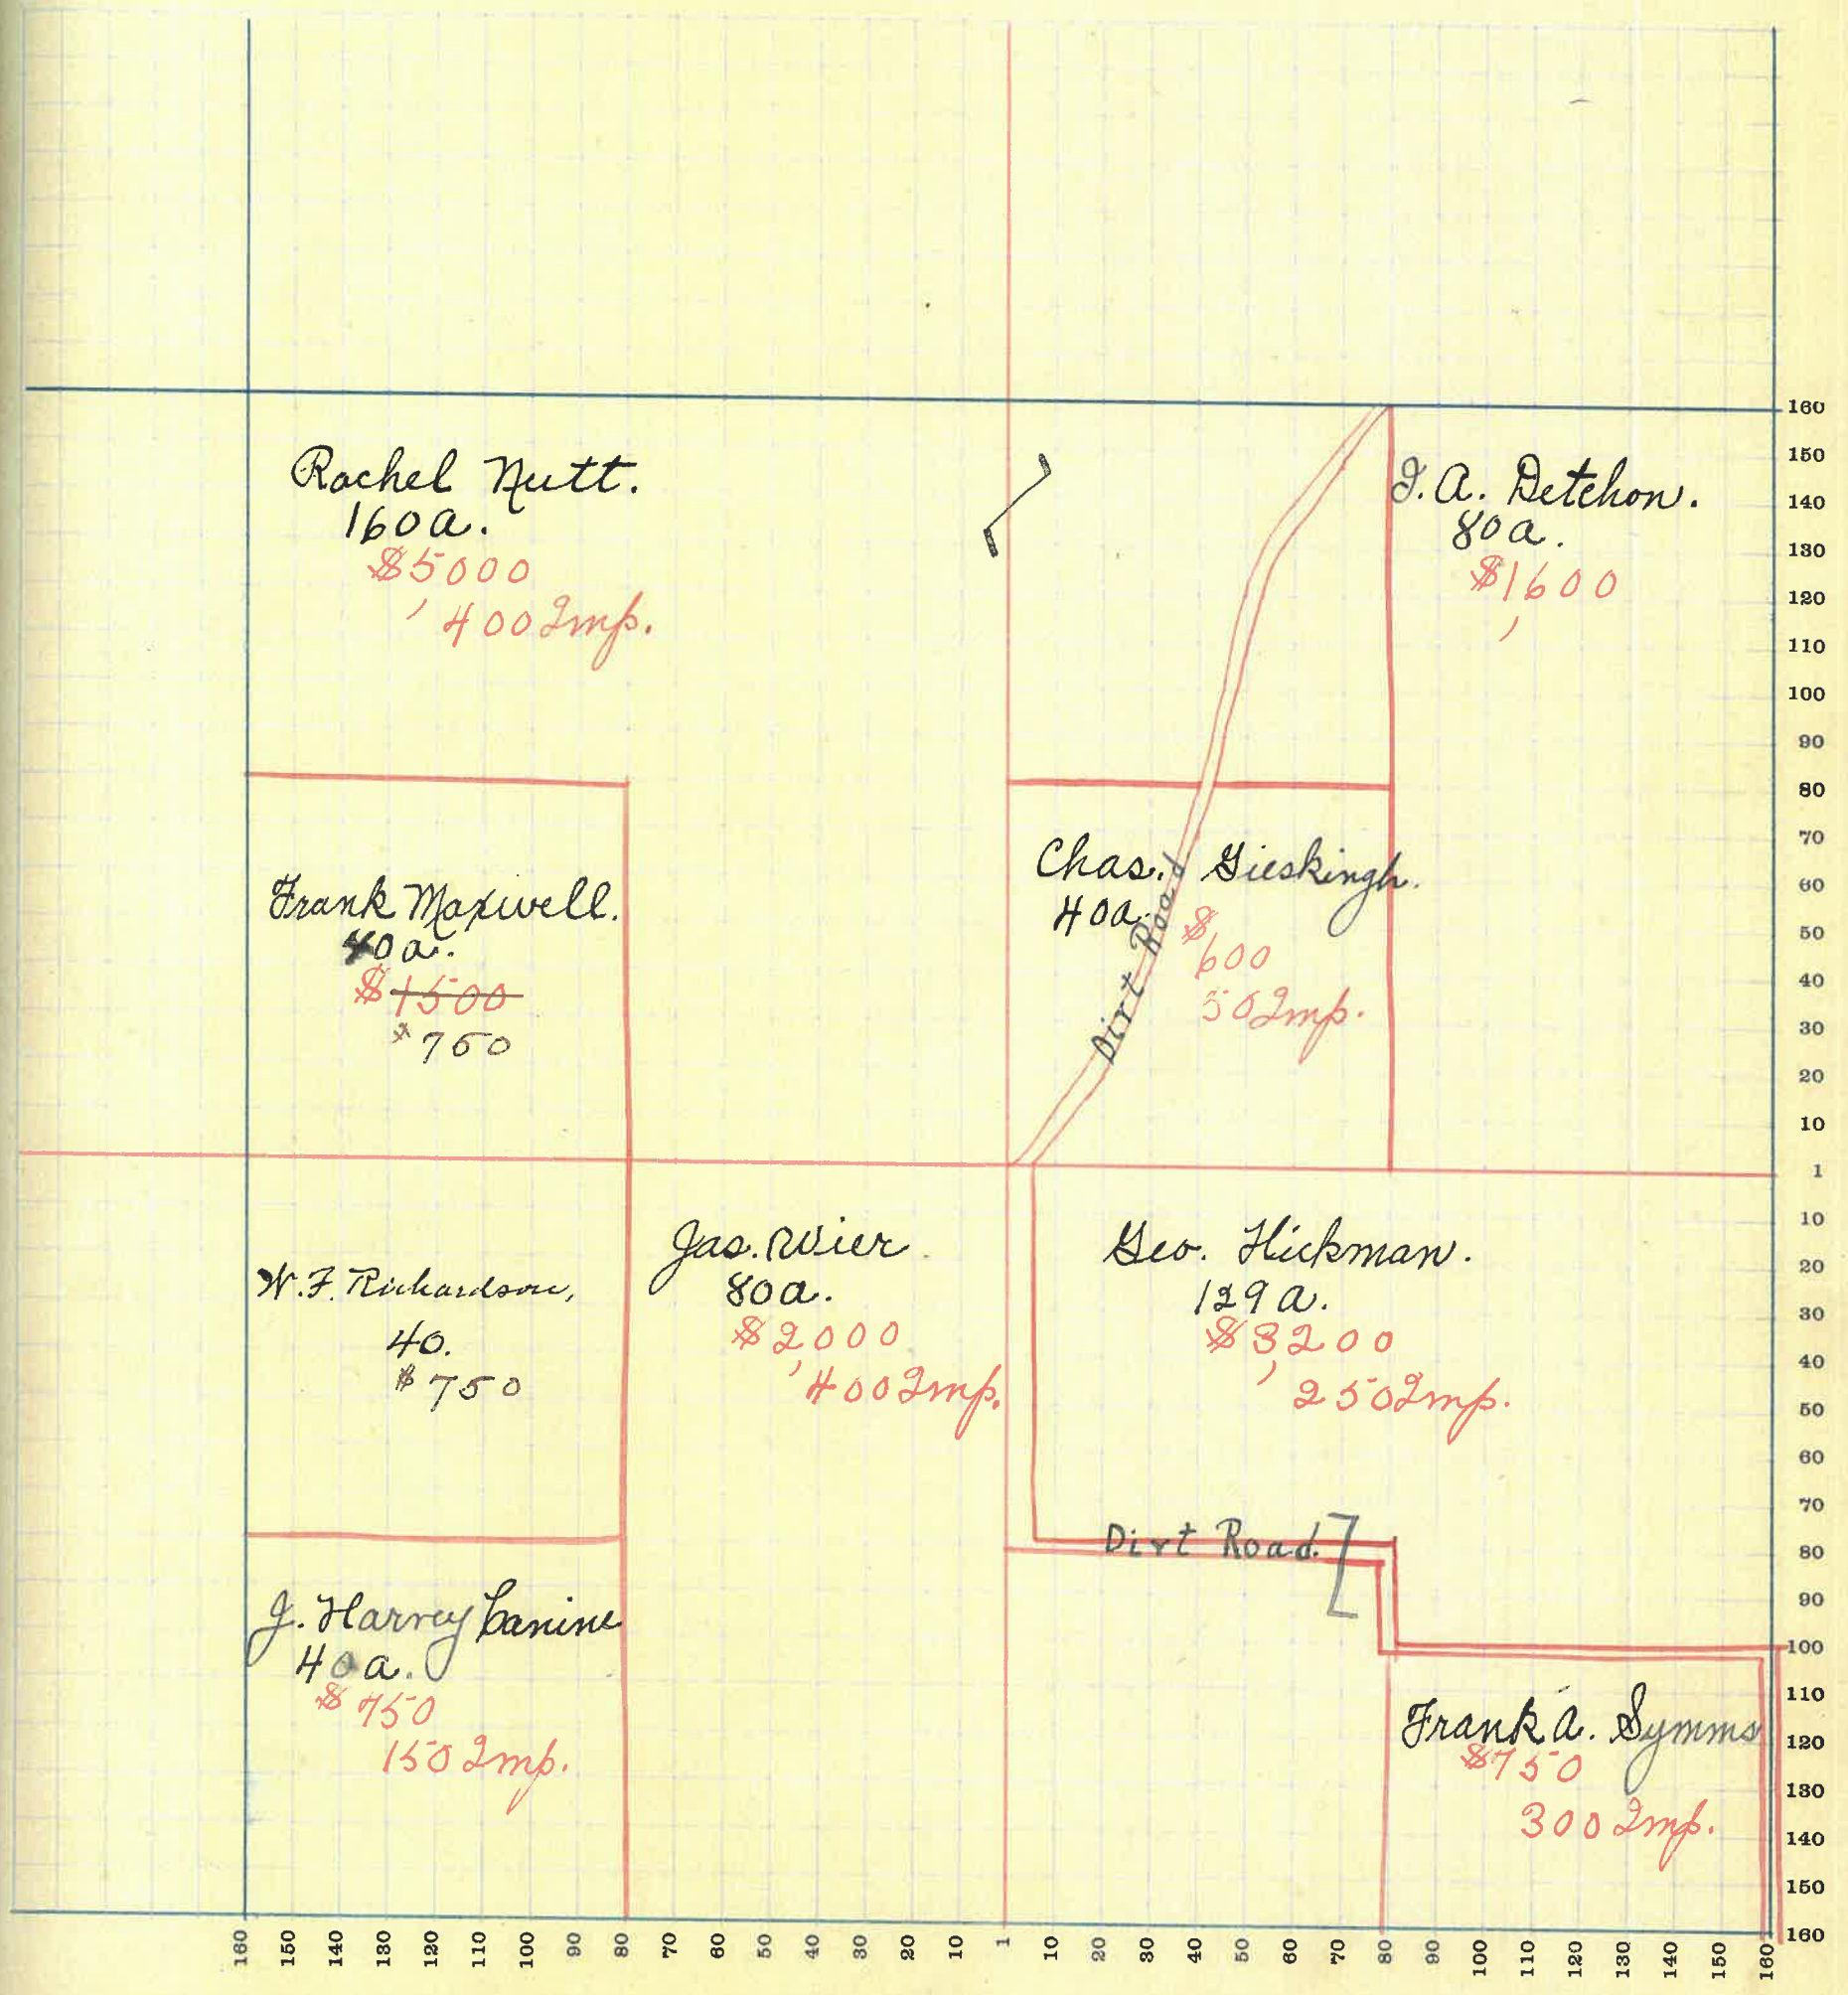 Rachel Nutt.
160 a.
$5000
' 400 Imp.
J. A. Detchon.
80 a.
$1600
'
Frank Maxwell.
40 a.
$1500
$750
Chas. Gieskingh.
40 a.
$
600
50 Imp.
Dirt Road
W. F. Richardson,
40.
$750
Jas. Wier
80 a.
$2000
' 400 Imp.
Geo. Hickman.
129 a.
$3200
' 250 Imp.
Dirt Road.
J. Harvey Canine
40 a.
$750
150 Imp.
Frank A. Symms
$750
300 Imp.
160
150
140
130
120
110
100
90
80
70
60
50
40
30
20
10
1
10
20
30
40
50
60
70
80
90
100
110
120
130
140
150
160
160 150 140 130 120 110 100 90 80 70 60 50 40 30 20 10 1 10 20 30 40 50 60 70 80 90 100 110 120 130 140 150 160